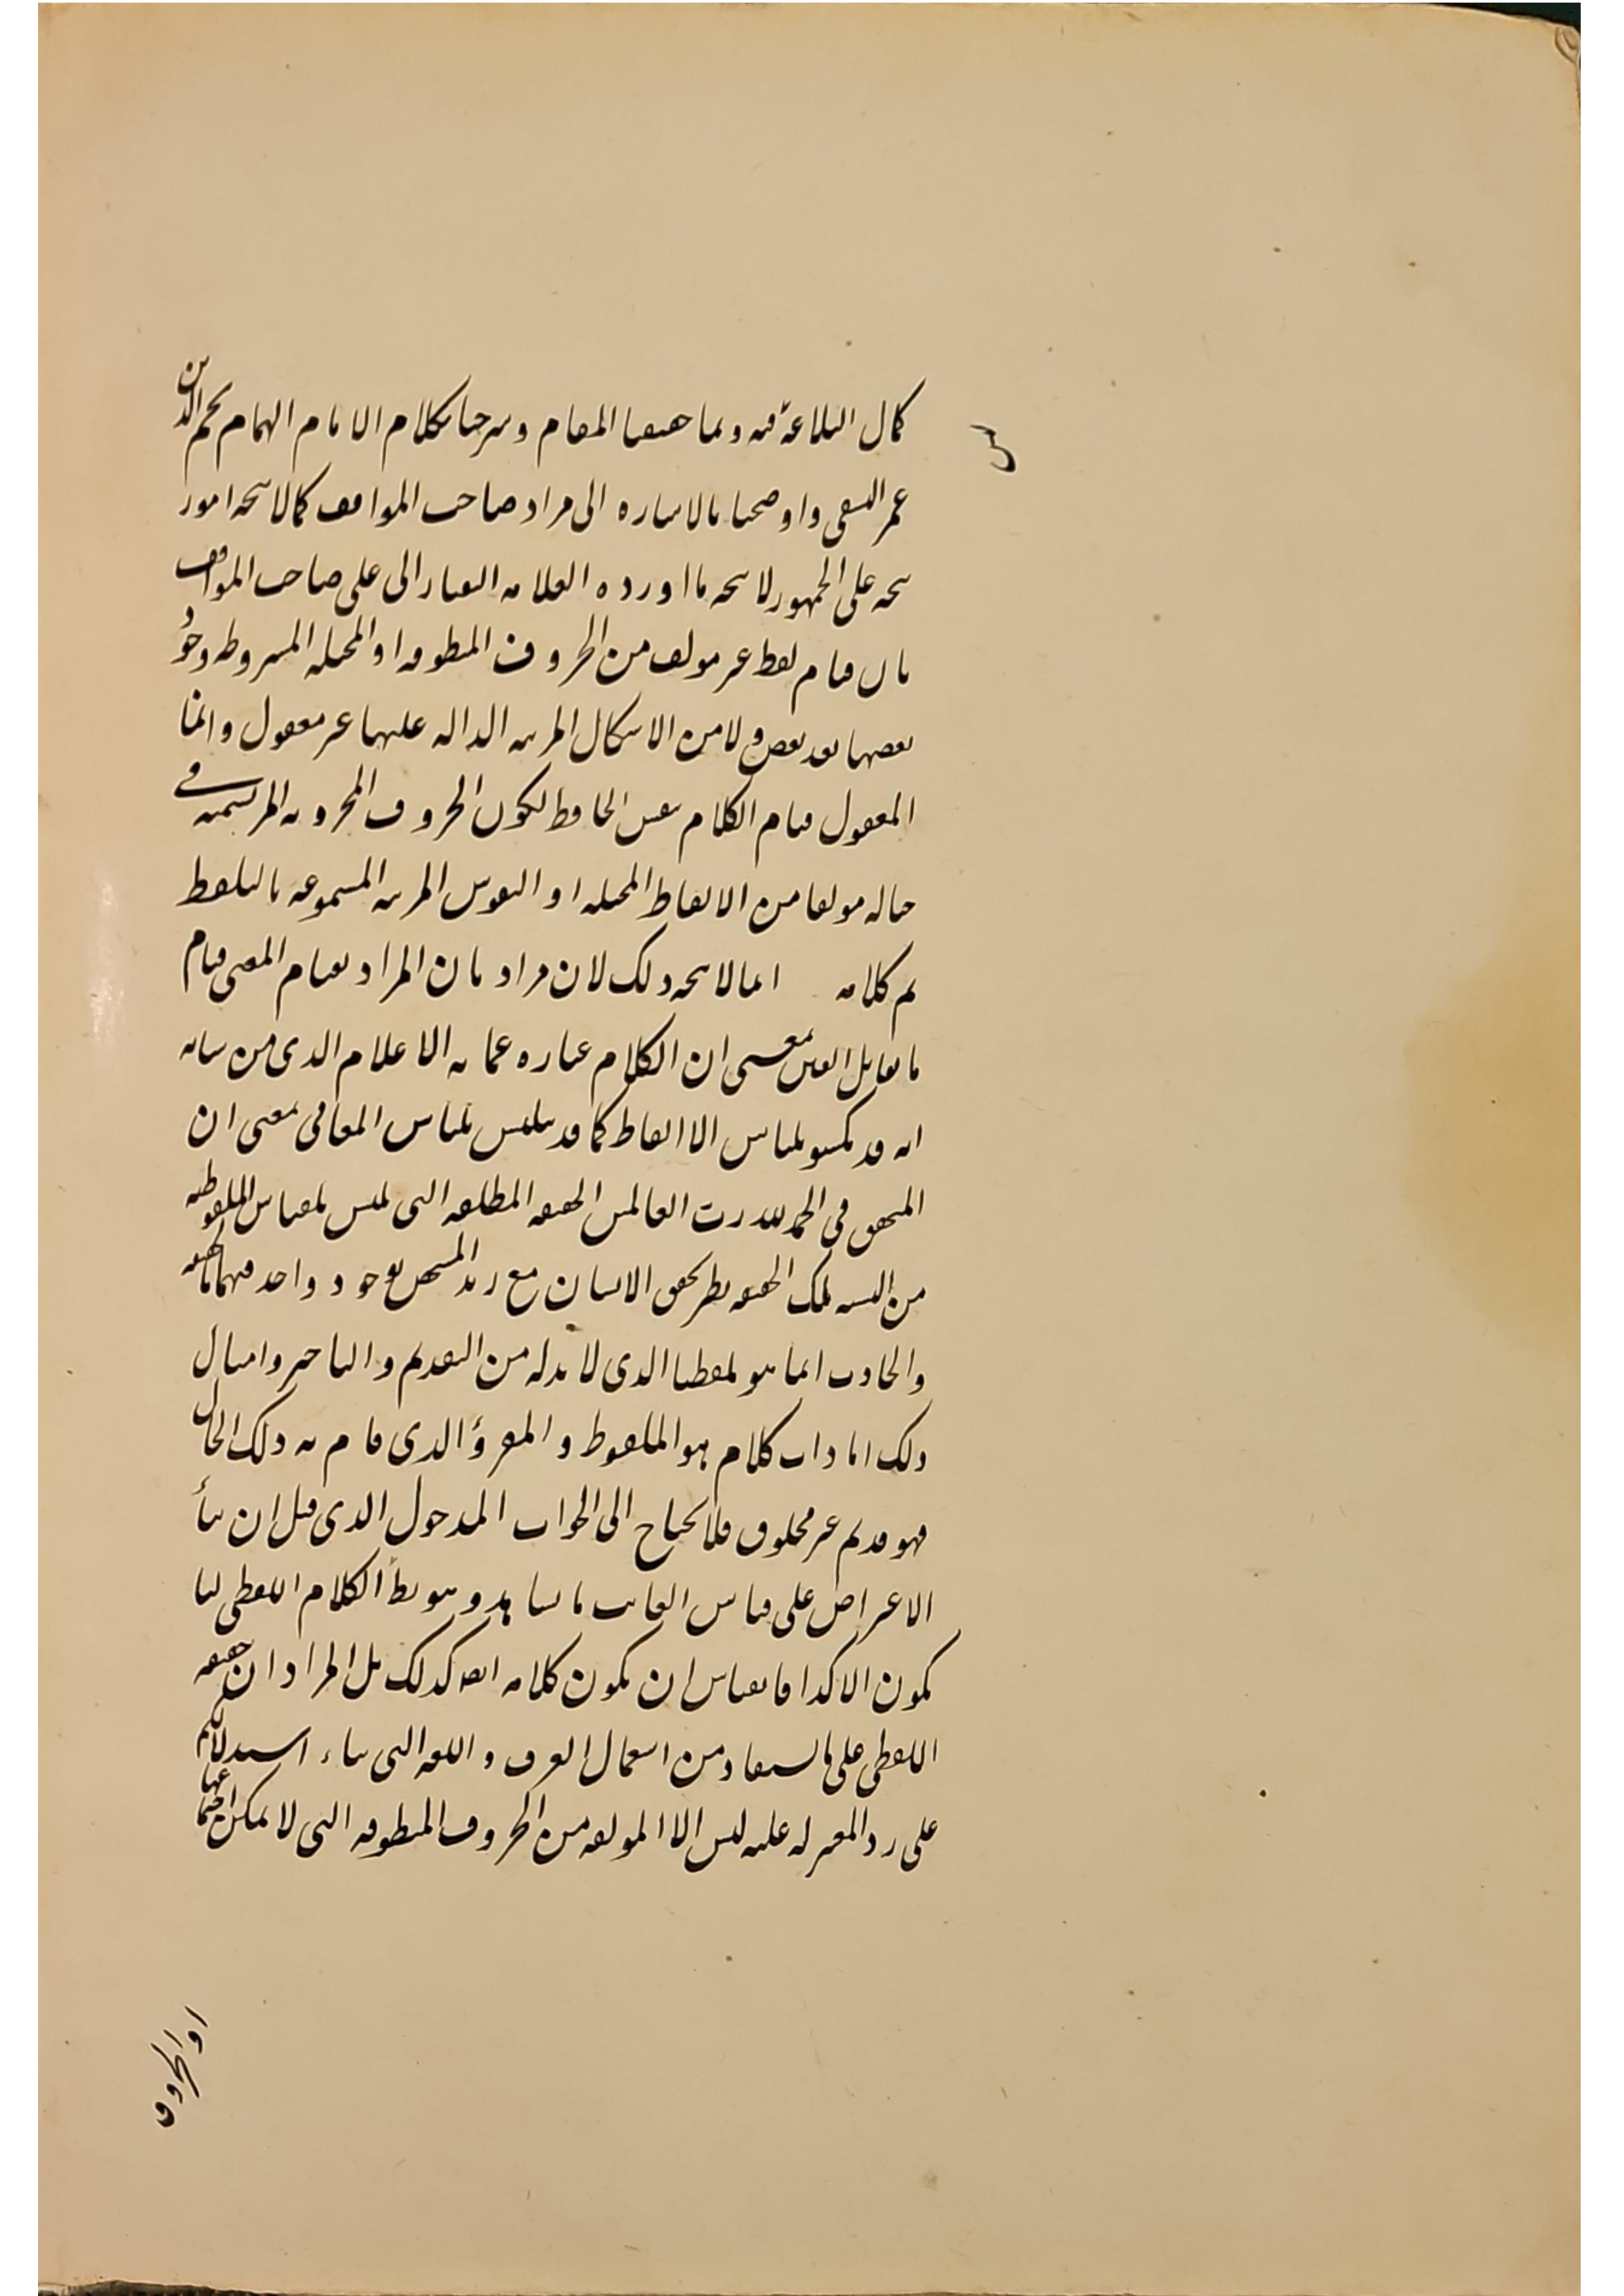 س
كمال البلاغة فيه وبما حققنا المقام وشرحنا كلام الامام الهمام نجم الدين
عمر النسفي واوضحنا بالاشاره الى مراد صاحب المواقف كما لا يتجه امور
يتجه على الجمهور لا يتجه ما اورده العلامه التفتازانى على صاحب المواقف
بان قيام لفظ غير مولف من الحروف المنطوقه او المخيله المشروطه وجود
بعضها بعد بعض ولا من الاشكال المرتبه الداله عليها غير معقول وانما
المعقول قيام الكلام بنفس الحافظ لكون الحروف المخزونه المرتسمة فى
خياله مولفا من الالفاظ المخيله او النقوش المرتبه المسموعه بالتلفظ
تم كلامه انما لا يتجه ذلك لان مراده بان المراد بقيام المعنى قيام
ما يقابل العين بمعنى ان الكلام عباره عما به الاعلام الذى من شانه
انه قد يكتسو بلباس الاالفاظ كما قد يتلبس بلباس المعانى بمعنى ان
المتحقق فى الحمد لله رب العالمين الحقيقه المطلقه التى تلبس بلباس الملفوظيه
من النسبه لتلك الحقيقه نظير تحقق الانسان مع زيد المتشخص بوجود واحد فيهما بالحقيقه
والحادث انما هو تلفظنا الذى لا بد له من التقديم والتاخير وامثال
ذلك اما ذات كلام هو الملفوظ والمقروٴ الذى قام به ذلك الحال
فهو قديم غير مخلوق فلا يحتاج الى الجواب المدخول الذى قيل ان بنأ
الاعتراض على قياس الغائب بالشاهد وهو بط الكلام اللفظى لنا
يكون الا كذا فالقياس ان يكون كلامه ايضا كذلك بل المراد ان حقيقه
اللفظى على ما يستفاد من استعمال العرف واللغه التى بناء استدلالكم
على رد المعتزله عليه ليس الا المولفه من الحروف المنطوقه التى لا يمكن اجتماعها
او الحروف